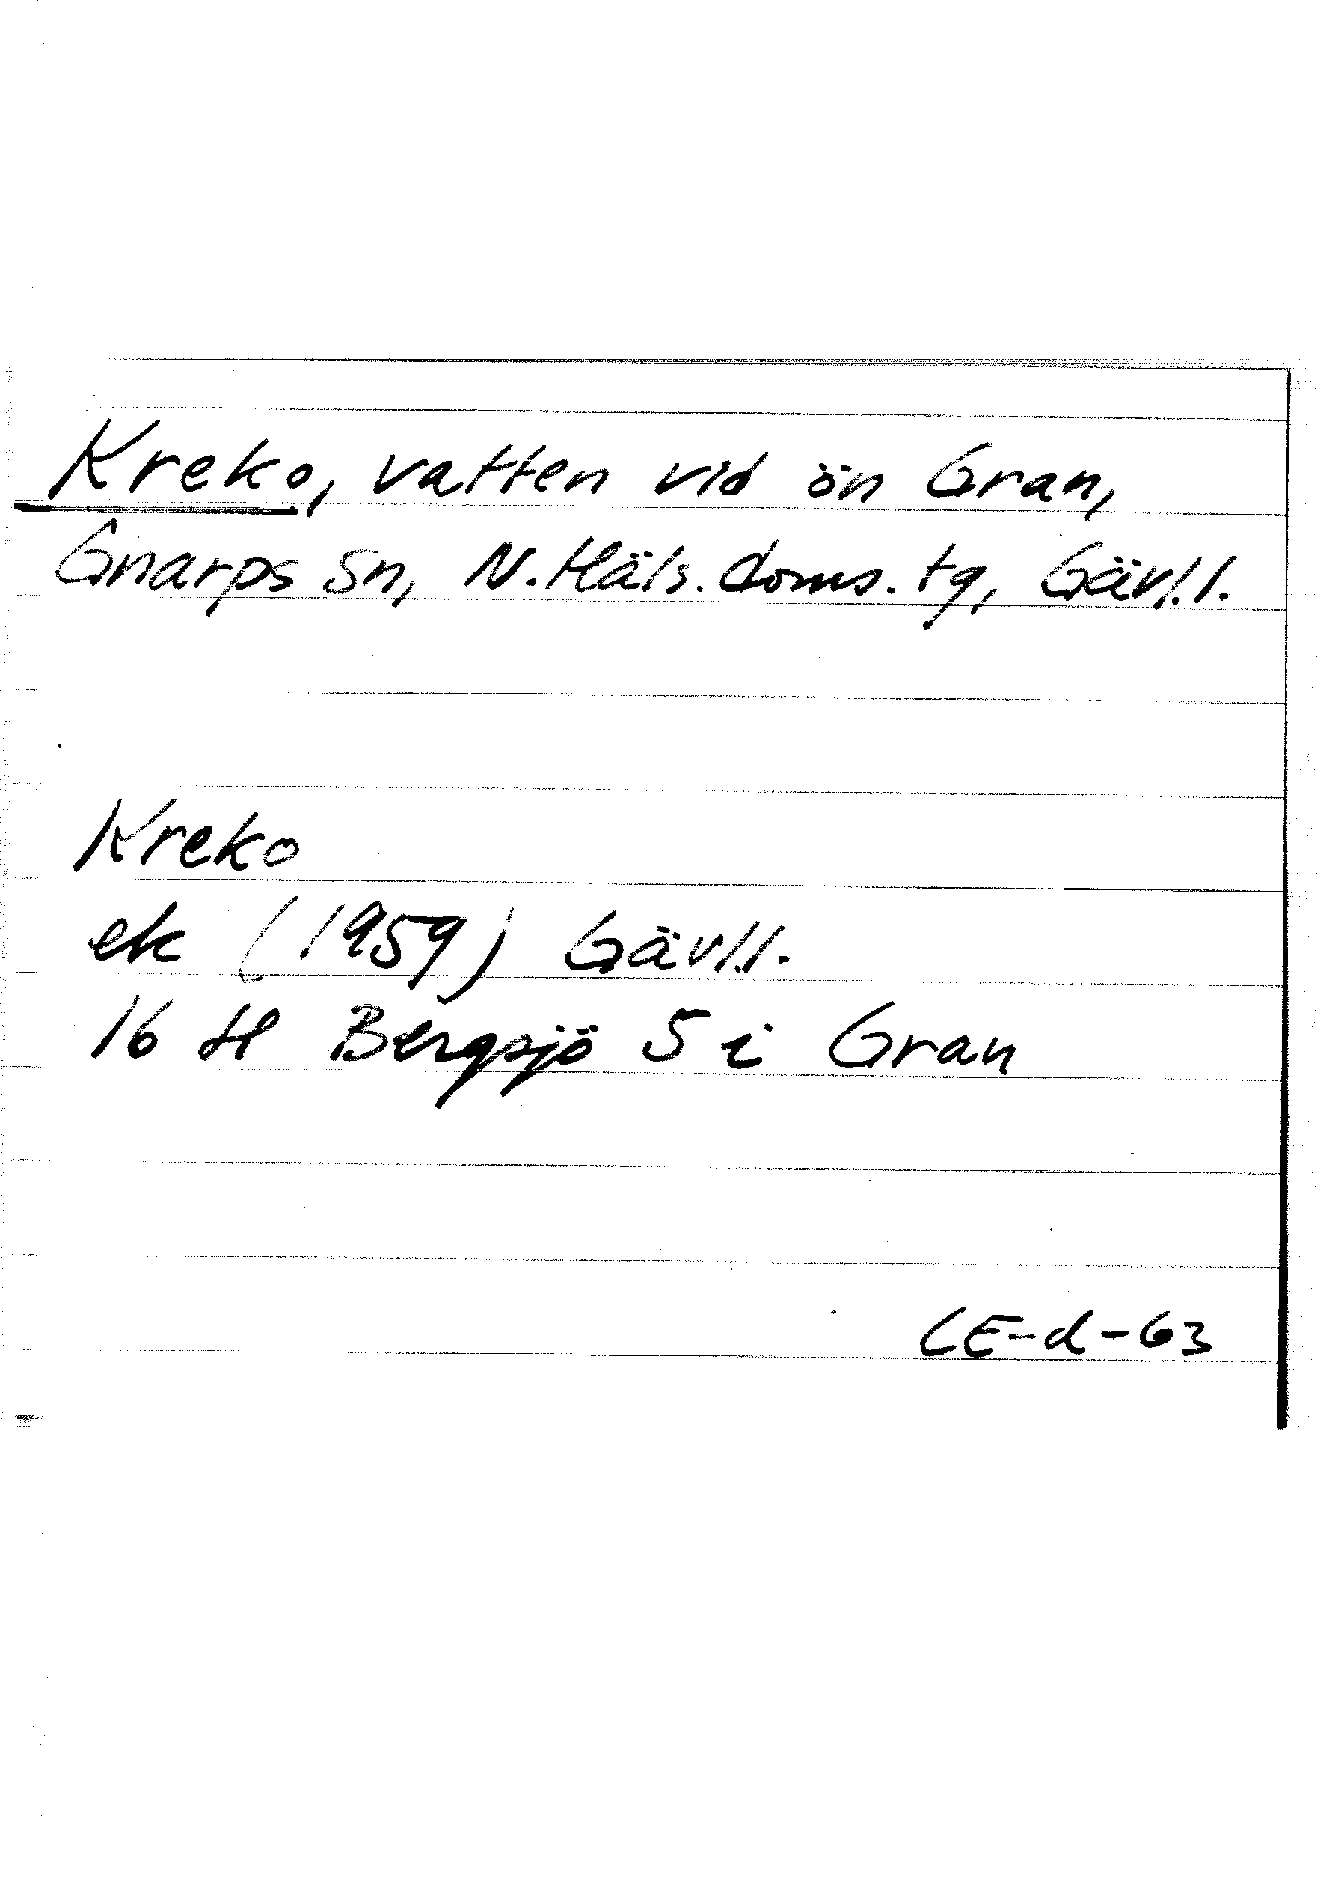 Kreko, vatten vid ön Gran,
Gnarps sn, N. Häls. doms. tg, Gävl.l.
Kreko
ek (1959) Gävl.l.
16 H Bergsjö 5 i Gran
CE-d-63